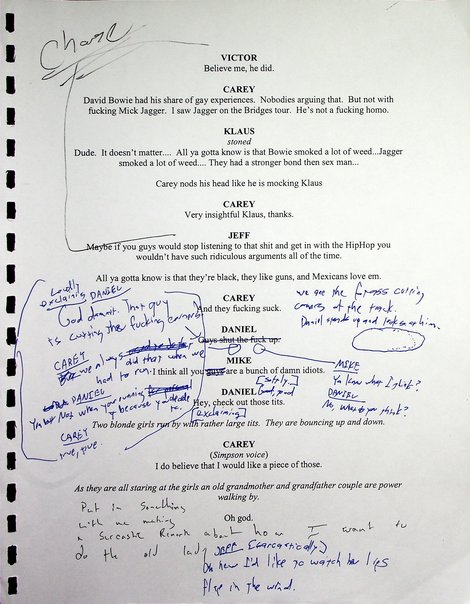 Change
VICTOR
Believe me, he did.
CAREY
David Bowie had his share of gay experiences. Nobodies arguing that. But not with
fucking Mick Jagger. I saw Jagger on the Bridges tour. He's not a fucking homo.
KLAUS
stoned
Dude. It doesn't matter.... All ya gotta know is that Bowie smoked a lot of weed...Jagger
smoked a lot of weed.... They had a stronger bond then sex man...
Carey nods his head like he is mocking Klaus
CAREY
Very insightful Klaus, thanks.
JEFF
Maybe if you guys would stop listening to that shit and get in with the HipHop you
wouldn't have such ridiculous arguments all of the time.
All ya gotta know is that they're black, they like guns, and Mexicans love em.
CAREY
And they fucking suck.
DANIEL
Guys shut the fuck up.
MIKE
I think all you guys are a bunch of damn idiots.
DANIEL
Hey, check out those tits.
Two blonde girls run by with rather large tits. They are bouncing up and down.
CAREY
(Simpson voice)
I do believe that I would like a piece of those.
As they are all staring at the girls an old grandmother and grandfather couple are power
walking by.
Oh god.
Loudly
exclaiming DANIEL
God dammit. That guy
is cutting the fucking corners!
CAREY
we always
did that when we
had to run.
DANIEL
Not when your running
because you decide
to.
CAREY
true, true.
we are the Grass cutting
corners of the track.
Daniel stands up and looks at him.
MIKE
Ya know what I think?
DANIEL
No, what do you think?
[simply]
Good, good
[exclaiming]
Put in something
with me making
a Sarcastic Remark about how I want to
do the old lady
JEFF [sarcastically]
Oh how I'd like to watch her lips
flap in the wind.